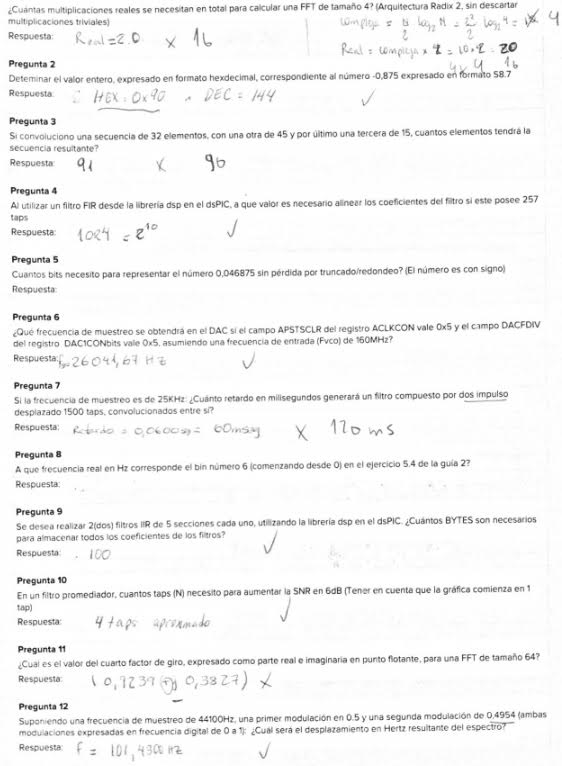 ¿Cuántas multiplicaciones reales se necesitan en total para calcular una FFT de tamaño 4? (Arquitectura Radix 2, sin descartar
multiplicaciones triviales)
compleja = N/2 log₂ N = 2²/2 log₂ 4 = 4
Respuesta: Real = 20 x 16
Real = compleja x 2 = 10 x 2 = 20
4 x 4 16
Pregunta 2
Deteminar el valor entero, expresado en formato hexdecimal, correspondiente al número -0,875 expresado en formato S8.7
Respuesta: HEX: 0x90 DEC = 144 ✓
Pregunta 3
Si convoluciono una secuencia de 32 elementos, con una otra de 45 y por último una tercera de 15, cuantos elementos tendrá la
secuencia resultante?
Respuesta: 91 x 90
Pregunta 4
Al utilizar un filtro FIR desde la librería dsp en el dsPIC, a que valor es necesario alinear los coeficientes del filtro si este posee 257
taps
Respuesta: 1024 = 2¹⁰ ✓
Pregunta 5
Cuantos bits necesito para representar el número 0,046875 sin pérdida por truncado/redondeo? (El número es con signo)
Respuesta:
Pregunta 6
¿Qué frecuencia de muestreo se obtendrá en el DAC si el campo APSTSCLR del registro ACLKCON vale 0x5 y el campo DACFDIV
del registro DAC1CONbits vale 0x5, asumiendo una frecuencia de entrada (Fvco) de 160MHz?
Respuesta: = 26041,67 HZ ✓
Pregunta 7
Si la frecuencia de muestreo es de 25KHz: ¿Cuánto retardo en milisegundos generará un filtro compuesto por dos impulso
desplazado 1500 taps, convolucionados entre sí?
Respuesta: Retardo = 0,0600 sg = 60msg x 120 ms
Pregunta 8
A que frecuencia real en Hz corresponde el bin número 6 (comenzando desde 0) en el ejercicio 5.4 de la guía 2?
Respuesta:
Pregunta 9
Se desea realizar 2(dos) filtros IIR de 5 secciones cada uno, utilizando la librería dsp en el dsPIC. ¿Cuántos BYTES son necesarios
para almacenar todos los coeficientes de los filtros?
Respuesta: 100 ✓
Pregunta 10
En un filtro promediador, cuantos taps (N) necesito para aumentar la SNR en 6dB (Tener en cuenta que la gráfica comienza en 1
tap)
Respuesta: 4 taps ✓
Pregunta 11
¿Cual es el valor del cuarto factor de giro, expresado como parte real e imaginaria en punto flotante, para una FFT de tamaño 64?
Respuesta: (0,9239 + j 0,3827) x
Pregunta 12
Suponiendo una frecuencia de muestreo de 44100Hz, una primer modulación en 0.5 y una segunda modulación de 0,4954 (ambas
modulaciones expresadas en frecuencia digital de 0 a 1): ¿Cuál será el desplazamiento en Hertz resultante del espectro?
Respuesta: f = 101,4300 HZ ✓